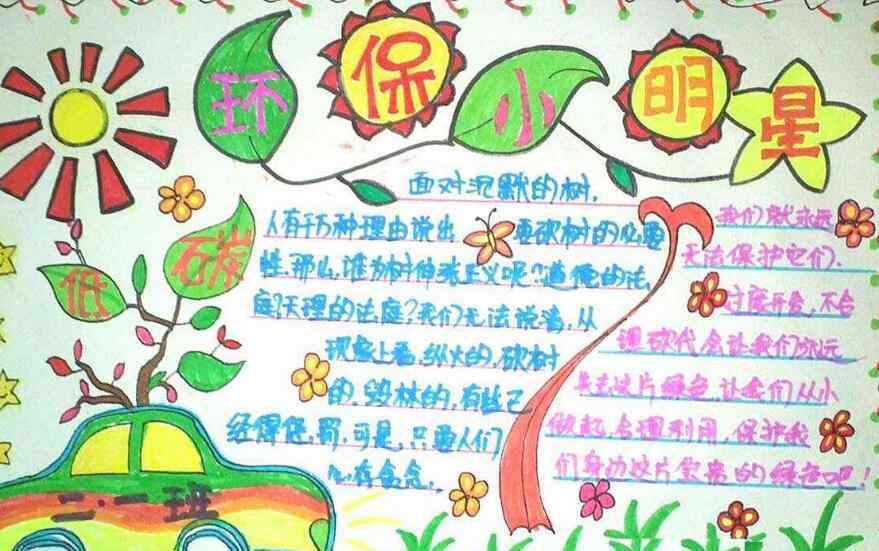 环保小明星
低碳
二·一班
面对沉默的树,
人有千万种理由说出要砍树的必要
性.那么,谁为树伸张正义呢?道德的法
庭?天理的法庭?我们无法说清,从
现象上看,纵火的,砍树
的,毁林的,有些已
经得惩罚,可是,只要人们
心存贪念,
我们就永远
无法保护它们.
过度开发,不合
理砍伐会让我们永远
失去这片绿色,让我们从小
做起,合理利用,保护我
们身边这片宝贵的绿色吧!